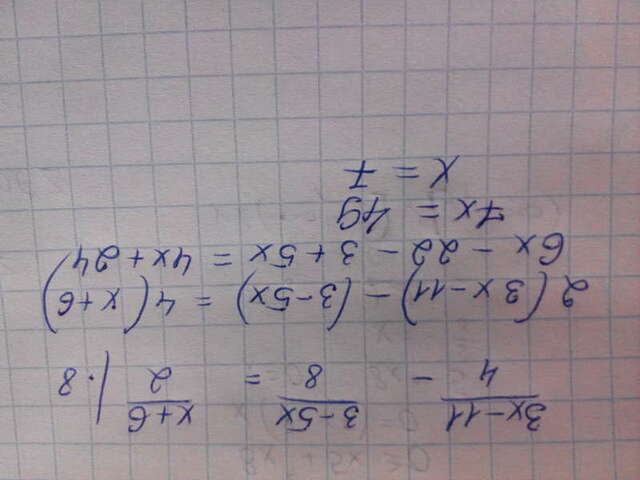 (3x-11)/4 - (3-5x)/8 = (x+6)/2 |·8
2(3x-11)-(3-5x) = 4(x+6)
6x - 22 - 3 + 5x = 4x + 24
7x = 49
x = 7